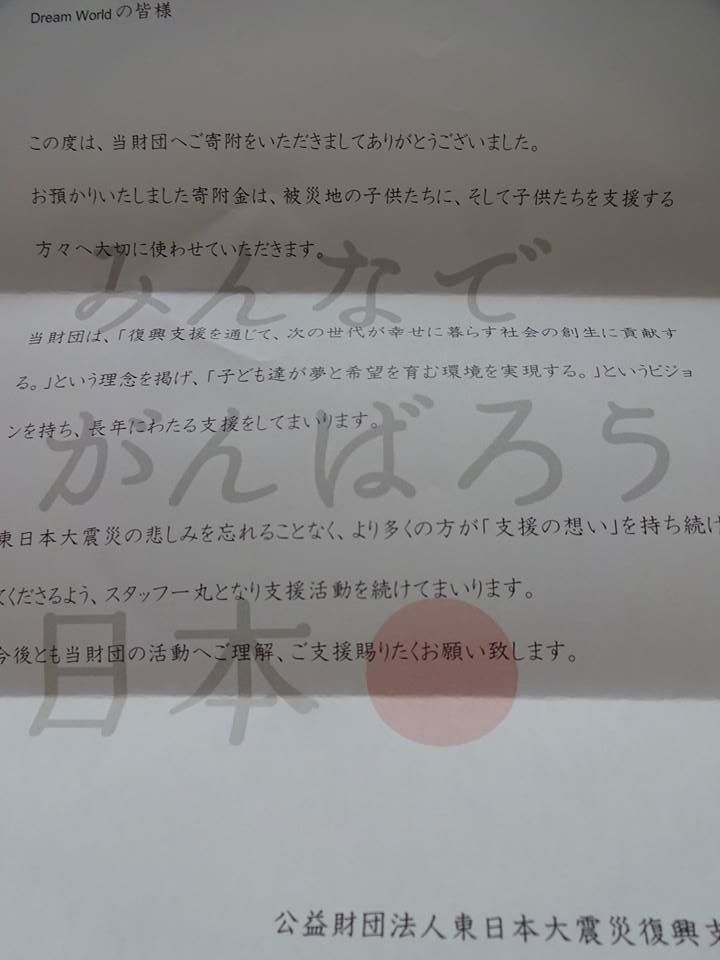 Dream World の皆様
この度は、当財団へご寄附をいただきましてありがとうございました。
お預かりいたしました寄附金は、被災地の子供たちに、そして子供たちを支援する
方々へ大切に使わせていただきます。
当財団は、「復興支援を通じて、次の世代が幸せに暮らす社会の創生に貢献す
る。」という理念を掲げ、「子ども達が夢と希望を育む環境を実現する。」というビジョ
ンを持ち、長年にわたる支援をしてまいります。
東日本大震災の悲しみを忘れることなく、より多くの方が「支援の想い」を持ち続け
てくださるよう、スタッフ一丸となり支援活動を続けてまいります。
今後とも当財団の活動へご理解、ご支援賜りたくお願い致します。
みんなで
がんばろう
日本
公益財団法人東日本大震災復興支